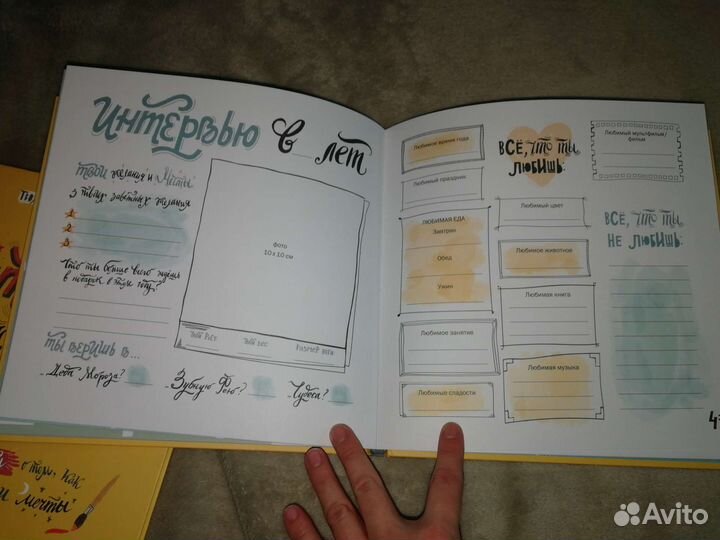 Интервью в лет
Твои желания и мечты
3 твоих заветных желания
1
2
3
Что ты больше всего ждёшь
в подарок в этом году?
Ты веришь в...
Деда Мороза?
Зубную Фею?
Чудеса?
Фото
10 x 10 см
твой рост
твой вес
размер ноги
Любимое время года
Любимый праздник
ЛЮБИМАЯ ЕДА
Завтрак
Обед
Ужин
Любимое занятие
Любимые сладости
Всё, что ты
любишь:
Любимый цвет
Любимое животное
Любимая книга
Любимая музыка
Любимый мультфильм/
фильм
Всё, что ты
не любишь:
о том, как
мечты
Avito